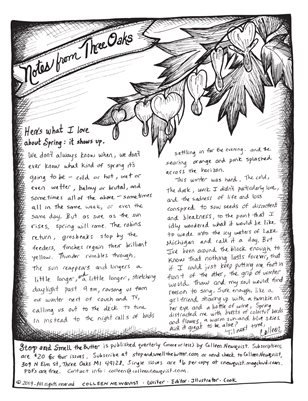 Notes from Three Oaks
Here's what I love
about Spring: it shows up.
We don't always know when, we don't
ever know what kind of spring it's
going to be – cold or hot, wet or
even wetter, balmy or brutal, and
sometimes all of the above – sometimes
all in the same week, or even the
same day. But as sure as the sun
rises, spring will come. The robins
return, grosbeaks stop by the
feeders, finches regain their brilliant
yellow. Thunder rumbles through,
the sun reappears and lingers a
little longer, a little longer, stretching
daylight past 9 pm, rousing us from
our winter nest of couch and TV,
calling us out to the deck to tune
in instead to the night calls of birds
settling in for the evening and the
searing orange and pink splashed
across the horizon.
This winter was hard. The cold,
the dark, until I didn't particularly love,
and the sadness of life and loss
conspired to sow seeds of discontent
and bleakness, to the point that I
idly wondered what it would be like
to wade into the icy waters of Lake
Michigan and call it a day. But
I've been around the block enough to
know that nothing lasts forever, that
if I could just keep putting one foot in
front of the other, the grip of winter
would thaw and my soul would find
reason to sing. Sure enough, like a
girlfriend showing up with a twinkle in
her eye and a bottle of wine, Spring
distracted me with bursts of colorful buds
and flowers, a warm sun and blue skies.
And it great to be alive?
'til next time,
Colleen
Stop and Smell the Butter is published quarterly (more or less) by Colleen Newquist. Subscriptions
are $20 for four issues. Subscribe at stopandsmellthebutter.com or send check to Colleen Newquist,
309 N Elm St, Three Oaks MI 49128. Single issues are $6 per copy at colleennewquist.magcloud.com.
PDFs are free. Contact info: colleen@colleennewquist.com.
© 2019. All rights reserved COLLEEN NEWQUIST · Writer · Editor · Illustrator · Cook